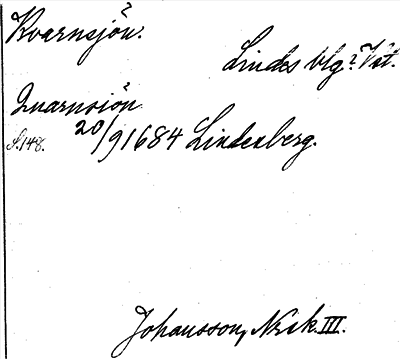 Kvarnsjön.
Lindes blg? Vst.
Quarnsiön
s. 148. 20/9 1684 Lindesberg.
Johansson, Noraskog III.